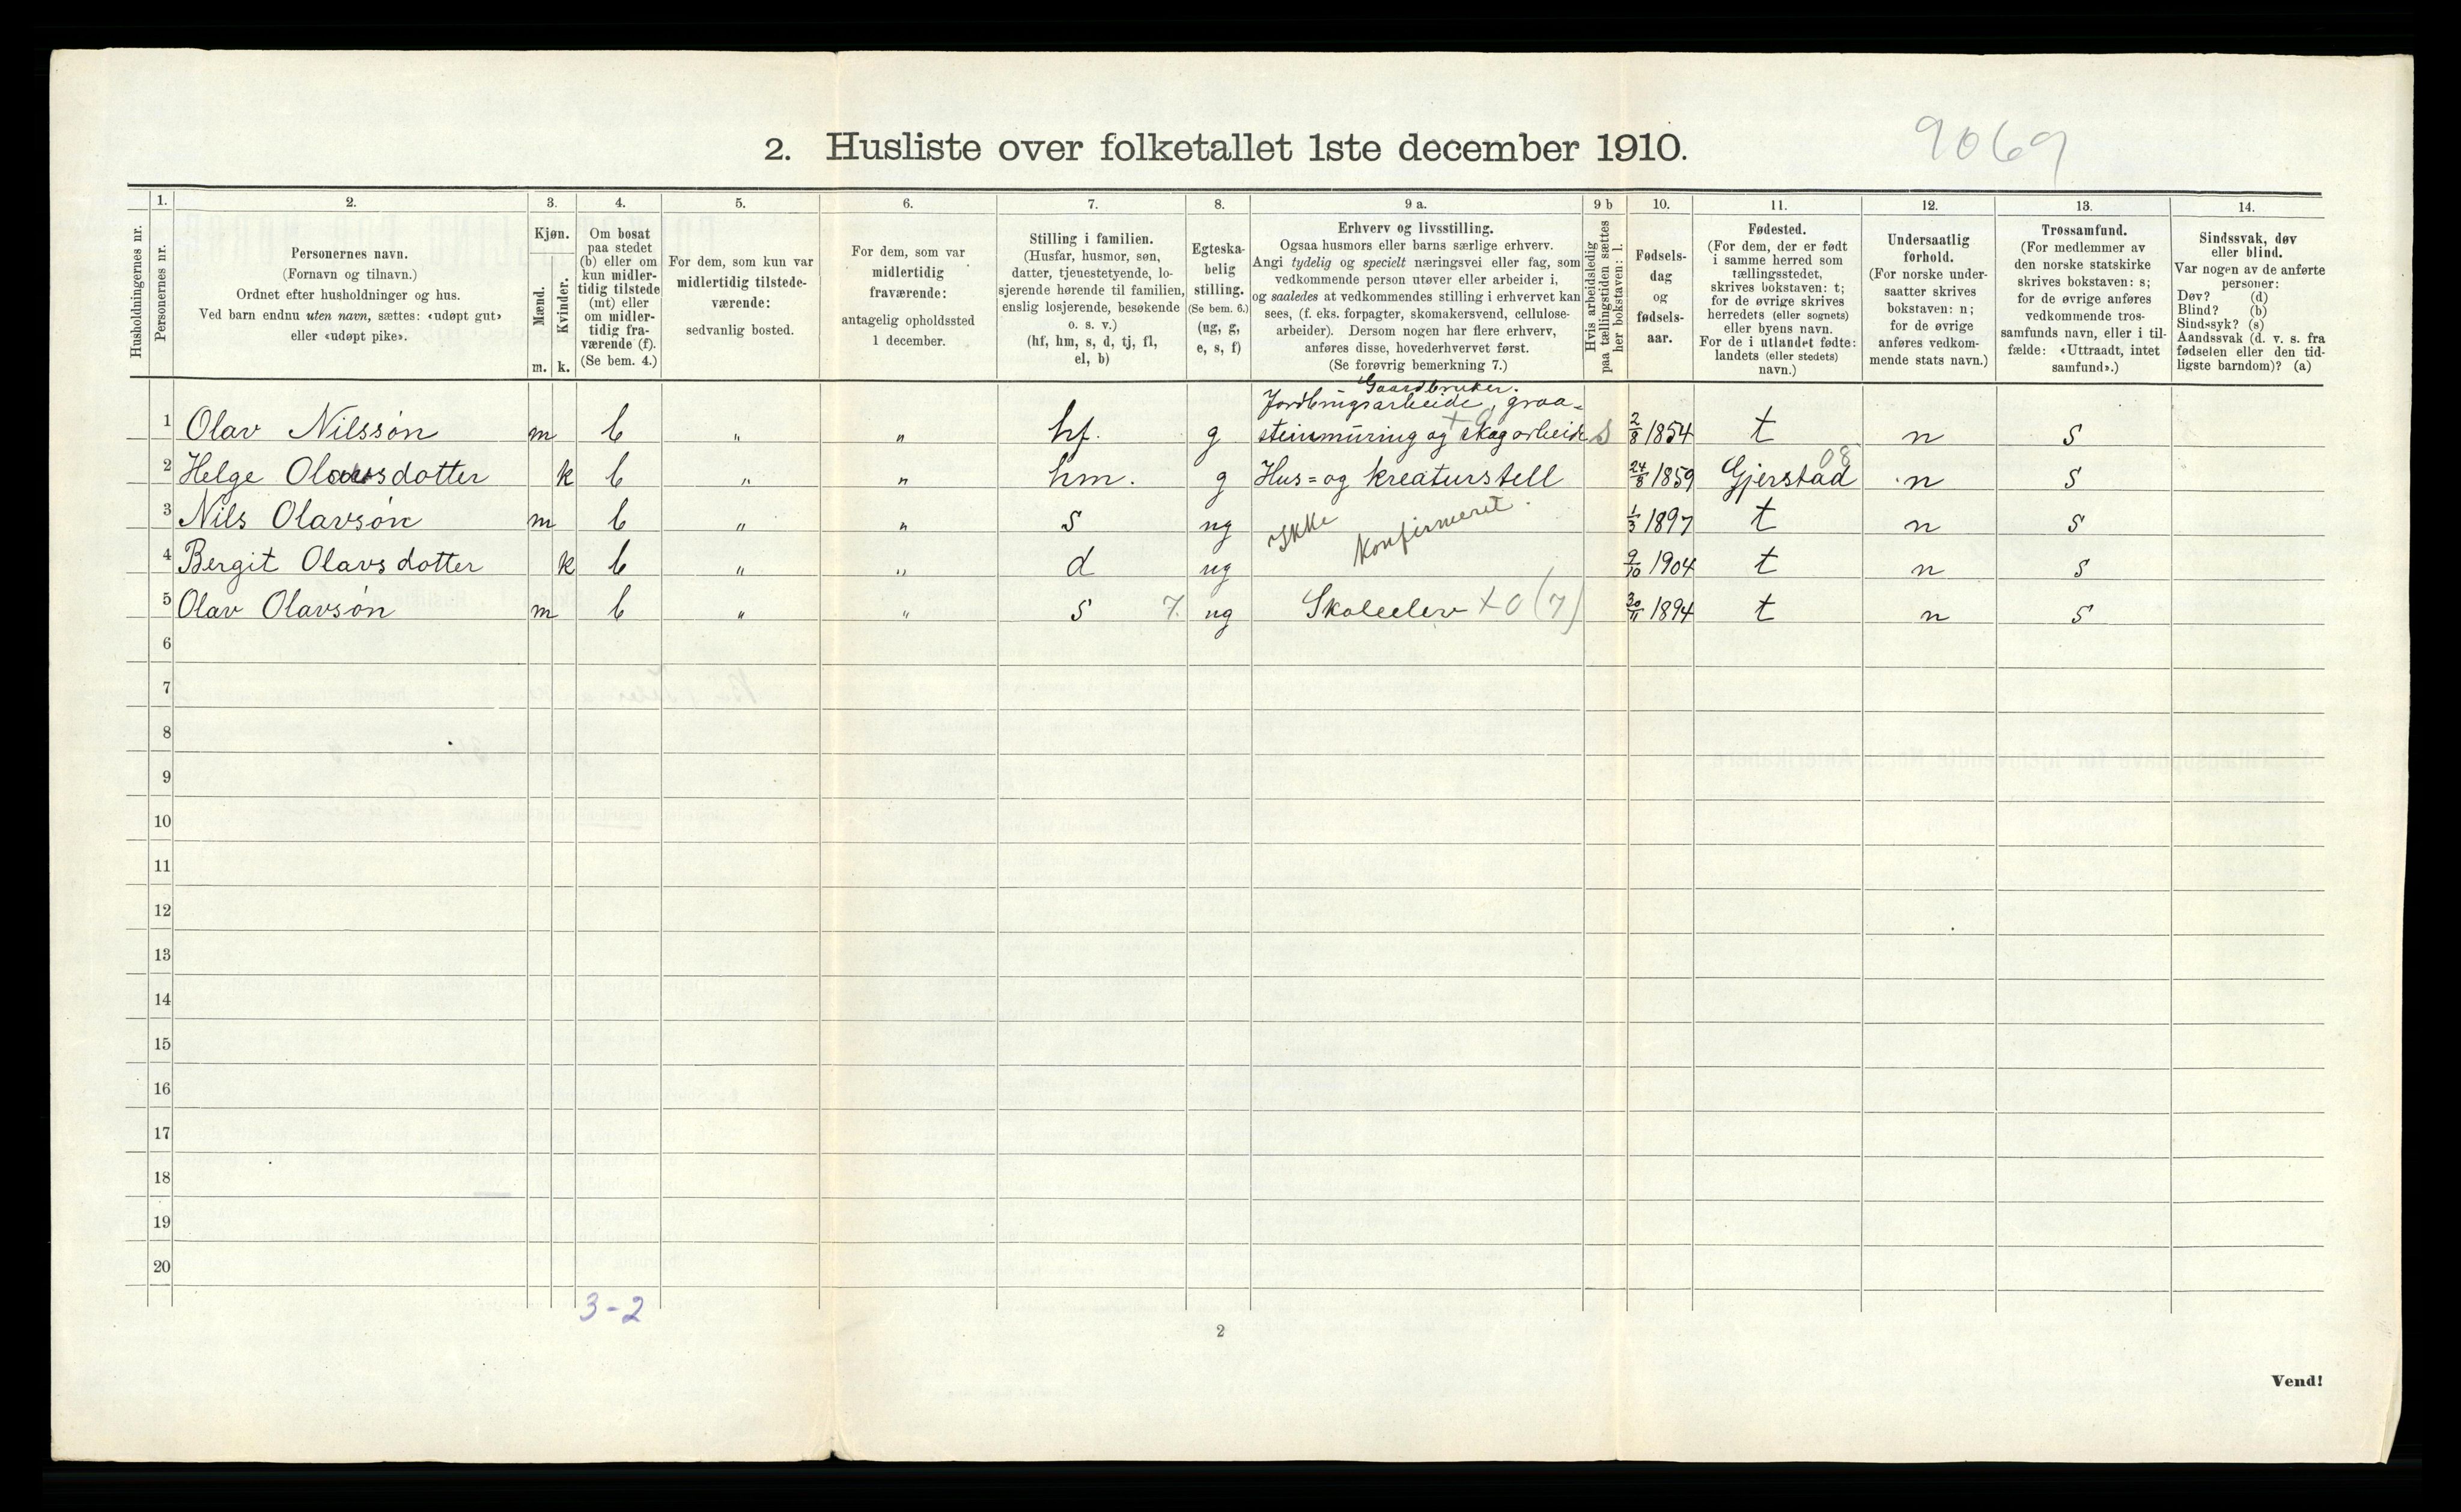 2. Husliste over folketallet 1ste december 1910.
9069
1. 2. 3. 4. 5. 6. 7. 8. 9 a. 9 b 10. 11. 12. 13. 14.
Husholdningernes nr.
Personernes nr.
Personernes navn.
(Fornavn og tilnavn.)
Ordnet efter husholdninger og hus.
Ved barn endnu uten navn, sættes: «udøpt gut»
eller «udøpt pike».
Kjøn.
Mænd.
Kvinder.
m. k.
Om bosat
paa stedet
(b) eller om
kun midler-
tidig tilstede
(mt) eller
om midler-
tidig fra-
værende (f).
(Se bem. 4.)
For dem, som kun var
midlertidig tilstede-
værende:
sedvanlig bosted.
For dem, som var
midlertidig
fraværende:
antagelig opholdssted
1 december.
Stilling i familien.
(Husfar, husmor, søn,
datter, tjenestetyende, lo-
sjerende hørende til familien,
enslig losjerende, besøkende
o. s. v.)
(hf, hm, s, d, tj, fl,
el, b)
Egteska-
belig
stilling.
(Se bem. 6.)
(ug, g,
e, s, f)
Erhverv og livsstilling.
Ogsaa husmors eller barns særlige erhverv.
Angi tydelig og specielt næringsvei eller fag, som
vedkommende person utøver eller arbeider i,
og saaledes at vedkommendes stilling i erhvervet kan
sees, (f. eks. forpagter, skomakersvend, cellulose-
arbeider). Dersom nogen har flere erhverv,
anføres disse, hovederhvervet først.
(Se forøvrig bemerkning 7.)
Hvis arbeidsledig
paa tællingstiden sættes
her bokstaven: l.
Fødsels-
dag
og
fødsels-
aar.
Fødested.
(For dem, der er født
i samme herred som
tællingsstedet,
skrives bokstaven: t;
for de øvrige skrives
herredets (eller sognets)
eller byens navn.
For de i utlandet fødte:
landets (eller stedets)
navn.)
Undersaatlig
forhold.
(For norske under-
saatter skrives
bokstaven: n;
for de øvrige
anføres vedkom-
mende stats navn.)
Trossamfund.
(For medlemmer av
den norske statskirke
skrives bokstaven: s;
for de øvrige anføres
vedkommende tros-
samfunds navn, eller i til-
fælde: «Uttraadt, intet
samfund».)
Sindssvak, døv
eller blind.
Var nogen av de anførte
personer:
Døv? (d)
Blind? (b)
Sindssyk? (s)
Aandssvak (d. v. s. fra
fødselen eller den tid-
ligste barndom)? (a)
Gaardbruker.
Jordbrugsarbeide, graa-
1 Olav Nilssön m b " " hf. g steinmüring og skogarbeide s 2/8 1854 t n s
2 Helge Olavsdotter k b " " hm. g Hus= og kreaturstell 24/8 1859 Gjerstad 08 n s
3 Nils Olavsön m b " " s ug Ikke konfirmeret. 1/3 1897 t n s
4 Bergit Olavsdotter k b " " d ug 9/10 1904 t n s
5 Olav Olavsön m b " " s 7. ug Skoleelev x0 (7) 30/11 1894 t n s
6
7
8
9
10
11
12
13
14
15
16
17
18
19
20
3-2
2
Vend!